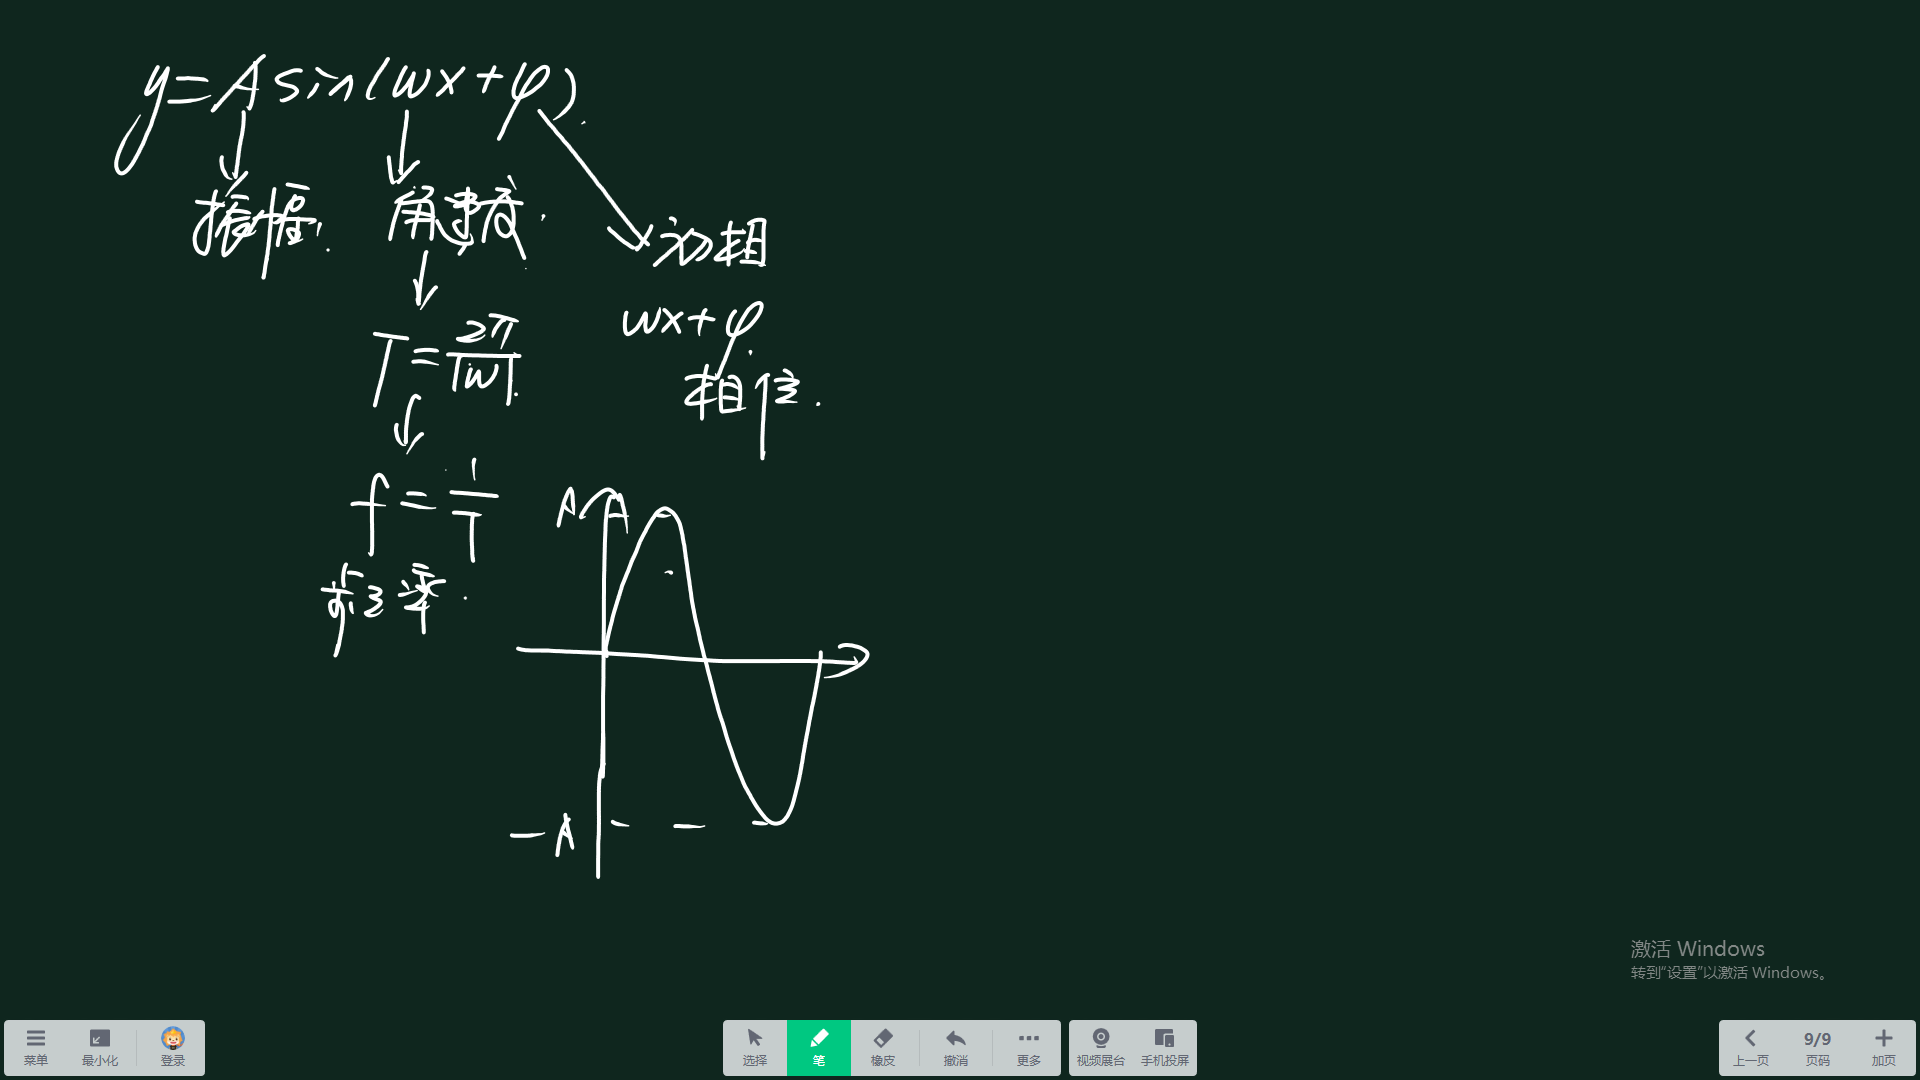 y=Asin(wx+φ).
振幅. 角速度.
初相
T=2π/|w|.
wx+φ.
相位.
f=1/T
频率.
A
-A
激活 Windows
转到"设置"以激活 Windows。
菜单 最小化 登录 选择 笔 橡皮 撤消 更多 视频展台 手机投屏 上一页 9/9 页码 加页